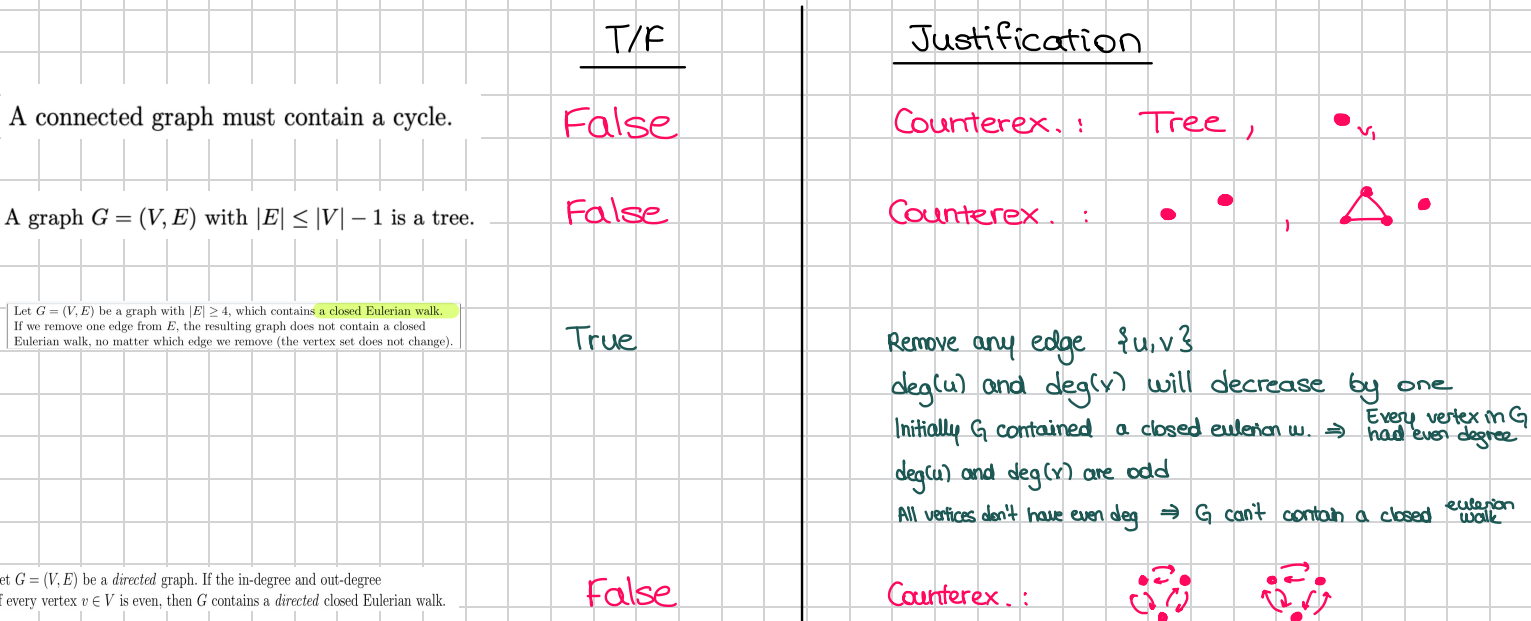 T/F Justification
A connected graph must contain a cycle. False Counterex. : Tree , v₁
A graph G = (V, E) with |E| ≤ |V| − 1 is a tree. False Counterex. : ,
Let G = (V, E) be a graph with |E| ≥ 4, which contains a closed Eulerian walk.
If we remove one edge from E, the resulting graph does not contain a closed
Eulerian walk, no matter which edge we remove (the vertex set does not change).
True
Remove any edge {u,v}
deg(u) and deg(v) will decrease by one
Initially G contained a closed eulerian w. ⇒ Every vertex in G had even degree
deg(u) and deg(v) are odd
All vertices don't have even deg ⇒ G can't contain a closed eulerian walk
et G = (V, E) be a directed graph. If the in-degree and out-degree
f every vertex v ∈ V is even, then G contains a directed closed Eulerian walk.
False Counterex. :